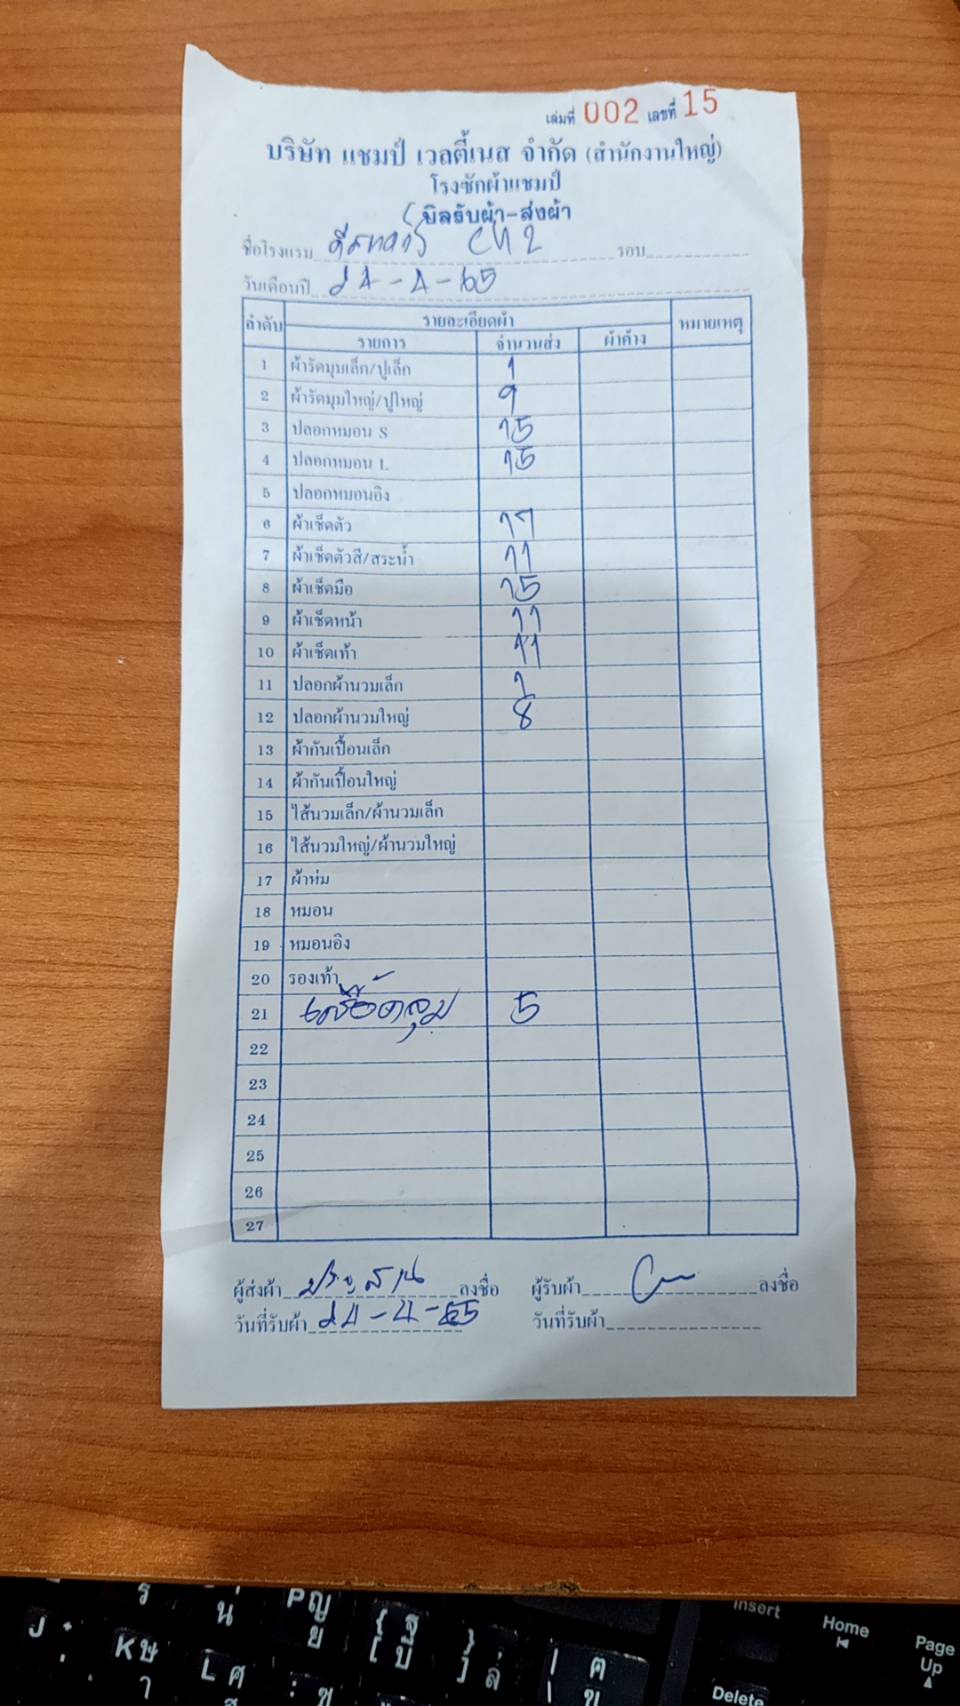 เล่มที่ 002 เลขที่ 15
บริษัท แชมป์ เวลตี้เนส จำกัด (สำนักงานใหญ่)
โรงซักผ้าแชมป์
บิลรับผ้า-ส่งผ้า
ชื่อโรงแรม CH2 รอบ
วันเดือนปี 24-4-65
ลำดับ รายละเอียดผ้า หมายเหตุ
รายการ จำนวนส่ง ผ้าค้าง
1 ผ้ารัดมุมเล็ก/ปูเล็ก 1
2 ผ้ารัดมุมใหญ่/ปูใหญ่ 9
3 ปลอกหมอน S 15
4 ปลอกหมอน L 15
5 ปลอกหมอนอิง
6 ผ้าเช็ดตัว 17
7 ผ้าเช็ดตัวสี/สระน้ำ 11
8 ผ้าเช็ดมือ 15
9 ผ้าเช็ดหน้า 11
10 ผ้าเช็ดเท้า 11
11 ปลอกผ้านวมเล็ก 1
12 ปลอกผ้านวมใหญ่ 8
13 ผ้ากันเปื้อนเล็ก
14 ผ้ากันเปื้อนใหญ่
15 ไส้นวมเล็ก/ผ้านวมเล็ก
16 ไส้นวมใหญ่/ผ้านวมใหญ่
17 ผ้าห่ม
18 หมอน
19 หมอนอิง
20 รองเท้า
21 เสื้อคลุม 5
22
23
24
25
26
27
ผู้ส่งผ้า ลงชื่อ ผู้รับผ้า ลงชื่อ
วันที่รับผ้า 24-4-65 วันที่รับผ้า
Insert
Home
Page
Up
Delete